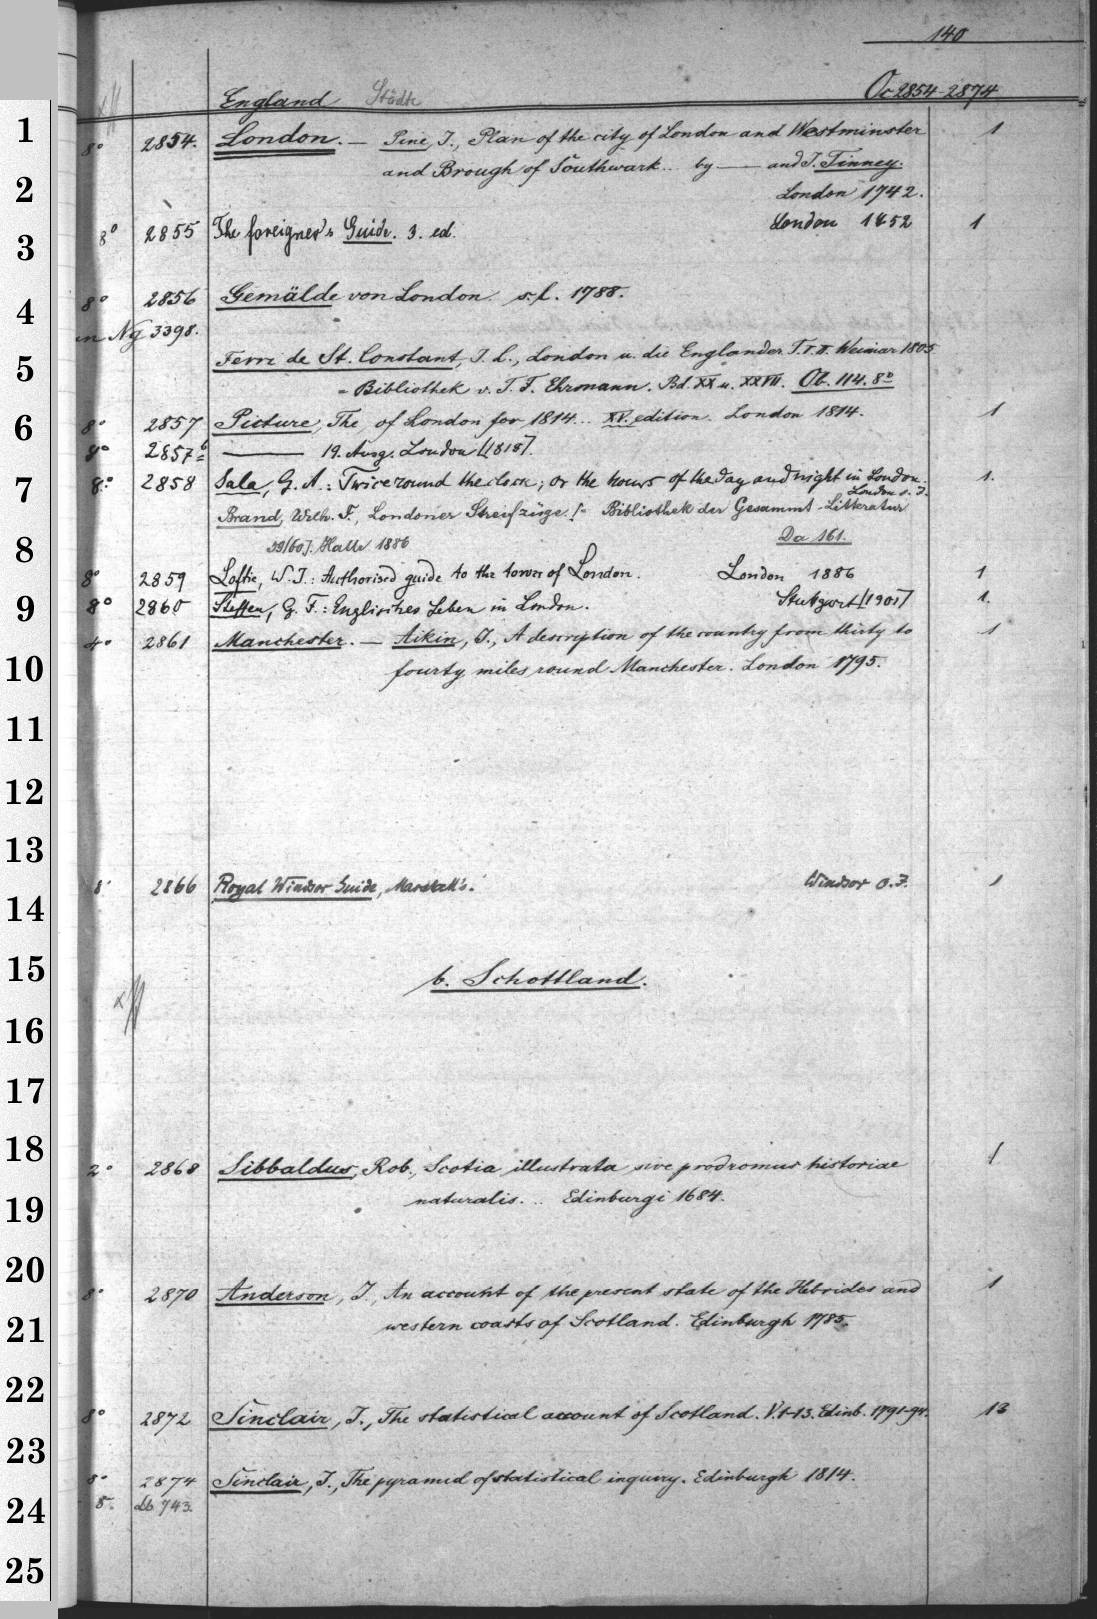 140
England Städte Oc 2854-2874
1
8° 2854. London. — Pine, J., Plan of the city of London and Westminster 1
2
and Brough of Southwark... by —— and J. Tinney.
London 1742.
3
8° 2855 The foreigner's Guide. 3. ed. London 1852 1
4
8° 2856 Gemälde von London. s. l. 1788.
in Ng 3398.
5
Ferri de St. Constant, J. L., London u. die Englander T. I. II. Weimar 1805
= Bibliothek v. T. F. Ehrmann. Bd. XX u. XXVII. Ob. 114. 8°
6
8° 2857 Picture, The, of London for 1814... XV. edition. London 1814. 1
8° 2857b —— 19. Ausg. London [1818].
7
8° 2858 Sala, G. A.: Twice round the clock; or the hours of the day and night in London. 1.
London s. J.
Brand, Wilh. F., Londoner Streifzüge. [= Bibliothek der Gesammt-Litteratur
8
59/60]. Halle 1886 Da 161.
8° 2859 Loftie, W. J.: Authorised guide to the tower of London. London 1886 1
9
8° 2860 Steffen, G. F.: Englisches Leben in London. Stuttgart [1901] 1.
4° 2861 Manchester. — Aikin, J., A description of the country from thirty to 1
10
fourty miles round Manchester. London 1795.
11
12
13
8° 2866 Royal Windsor Guide, Windsor o. J. 1
14
15
b. Schottland.
16
17
18
2° 2868 Sibbaldus, Rob., Scotia illustrata sive prodromus historiae 1
19
naturalis... Edinburgi 1684.
20
8° 2870 Anderson, J., An account of the present state of the Hebrides and 1
21
western coasts of Scotland. Edinburgh 1785.
22
8° 2872 Sinclair, J., The statistical account of Scotland. V. 1-13. Edinb. 1791-94. 13
23
8° 2874 Sinclair, J., The pyramid of statistical inquiry. Edinburgh 1814.
24
8. Lb 743.
25